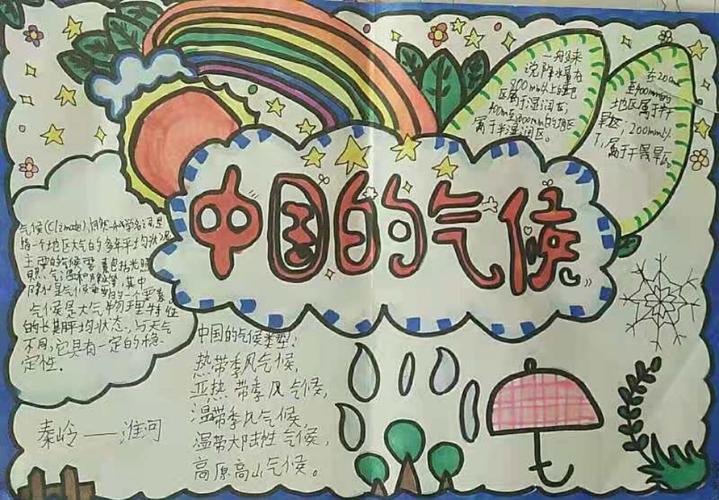 中国的气候
一般来
说降水量在
800mm以上的地
区属于湿润区;
400mm至800mm的地区
属于半湿润区。
在200mm
至400mm的
地区属于半
干旱区,200mm以
下,属于干旱区。
气候(Climate),
指一个地区大气的多年平均状况
主要的气候要素包括光照
气温和降水等,其中
降水是气候重要的一个要素
气候是大气物理特征
的长期平均状态,与天气
不同,它具有一定的稳
定性.
中国的气候类型:
热带季风气候,
亚热带季风气候,
温带季风气候,
温带大陆性气候,
高原高山气候。
秦岭——淮河